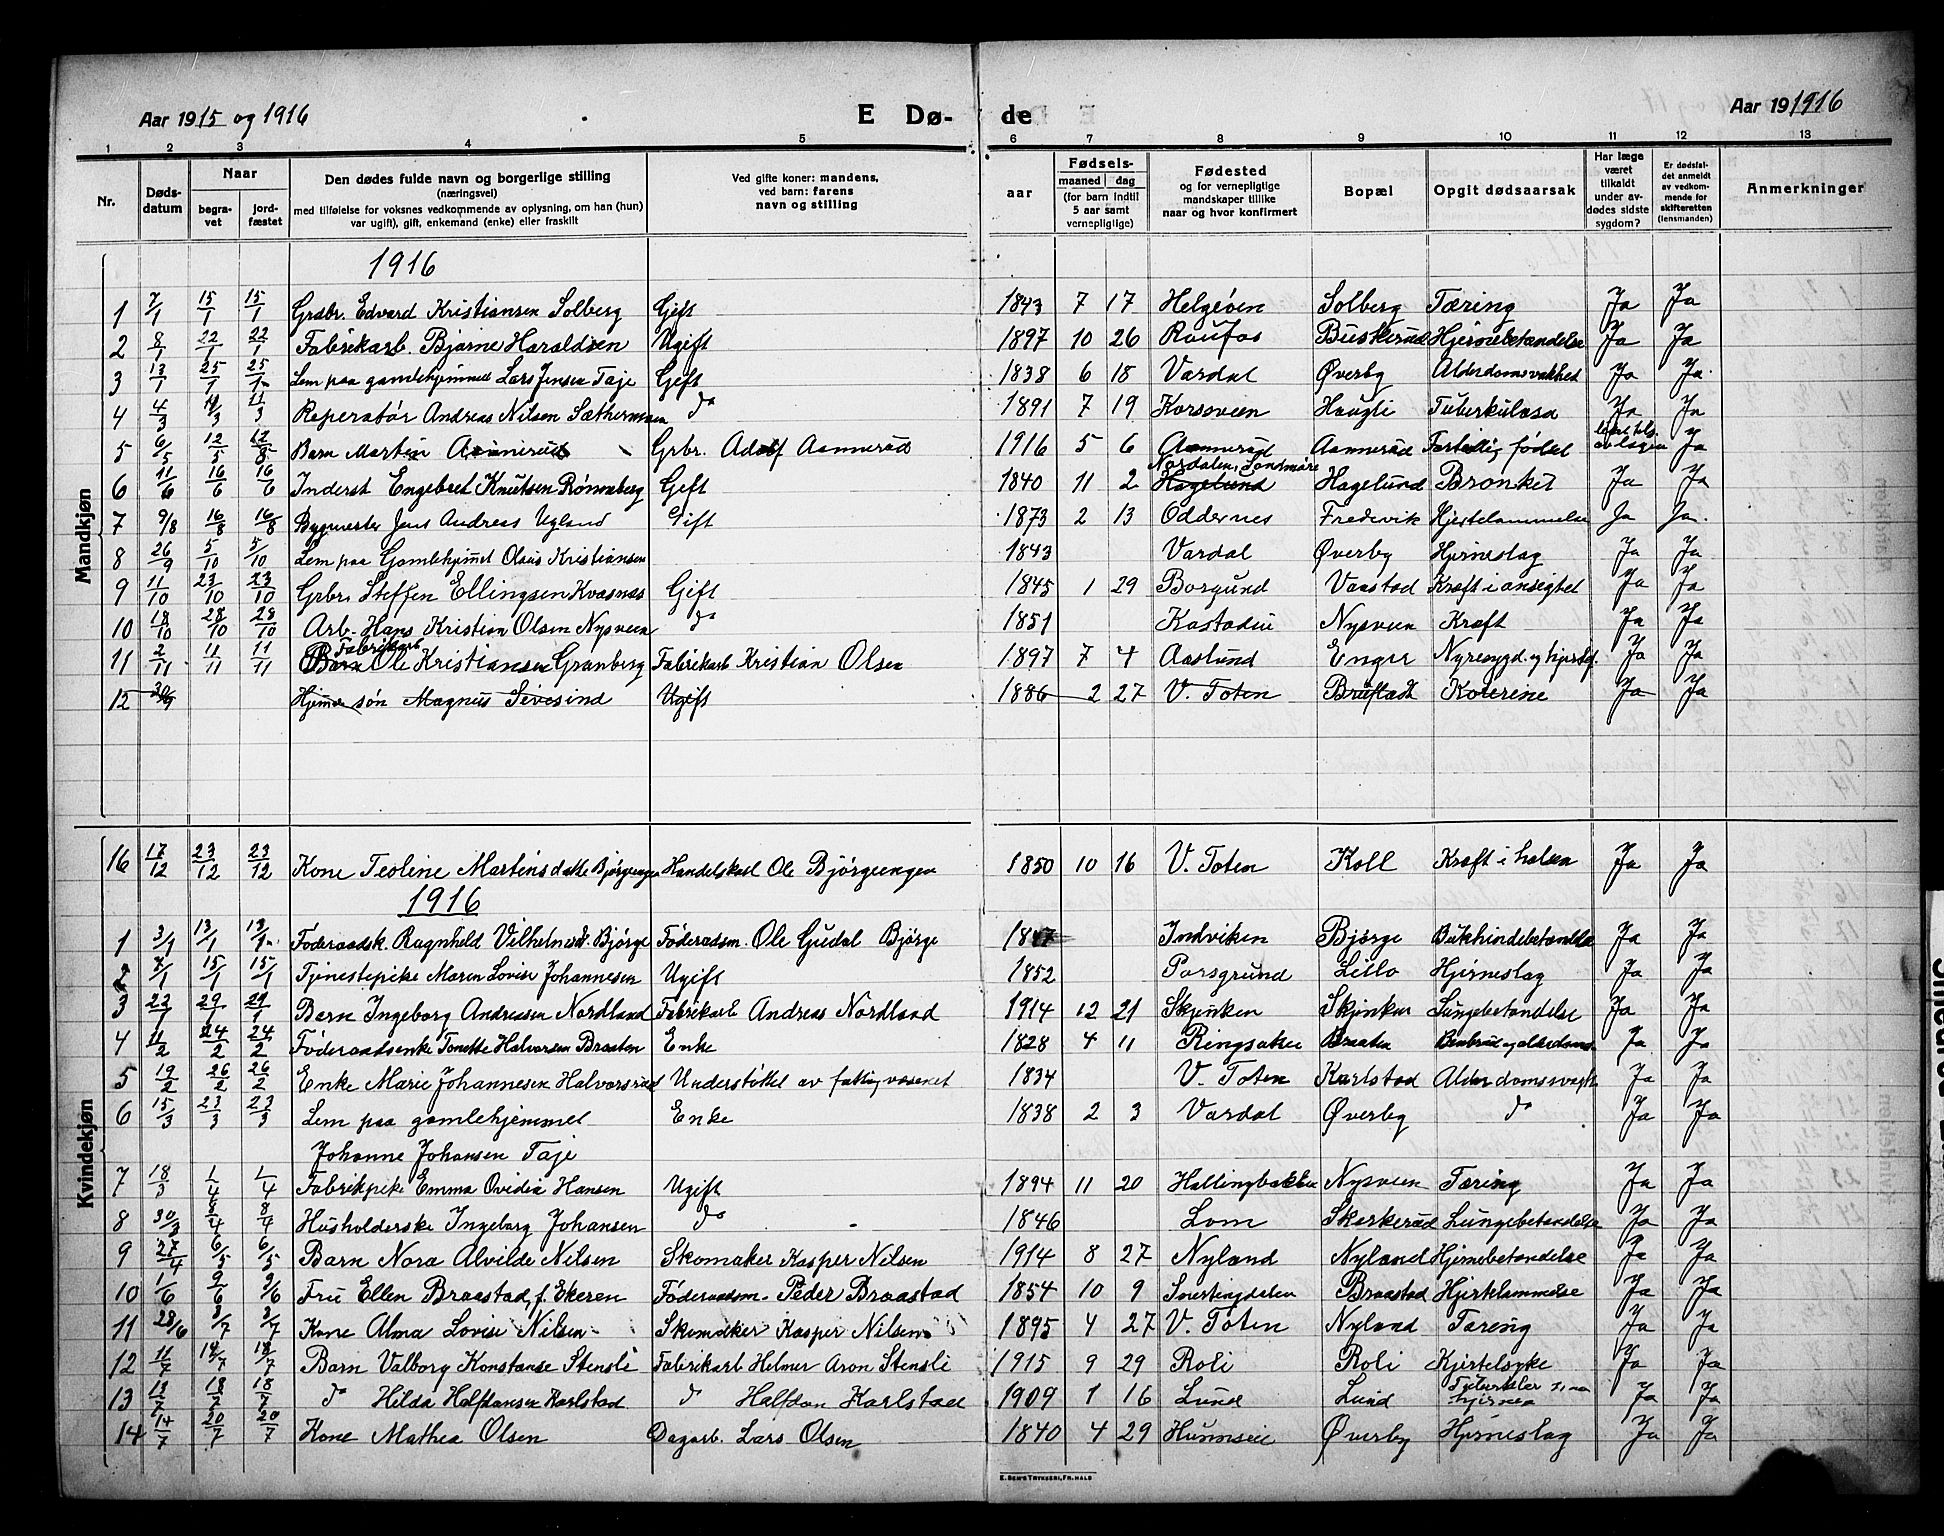 Aar 1915 og 1916 E Dø- de Aar 191916
1 2 3 4 5 6 7 8 9 10 11 12 13
Nr. Døds-datum Naar begra-vet jord-fæstet Den dødes fulde navn og borgerlige stilling (næringsvei) med tilføielse for voksnes vedkommende av oplysning, om han (hun) var ugift), gift, enkemand (enke) eller fraskilt Ved gifte koner: mandens, ved barn: farens navn og stilling aar Fødsels- maaned dag (for barn indtil 5 aar samt vernepligtige) Fødested og for vernepligtige mandskaper tillike naar og hvor konfirmert Bopæl Opgit dødsaarsak Har læge været tilkaldt under av-dødes sidste sygdom? Er dødsfal-det anmeldt av vedkom-mende for skifteretten (lensmanden) Anmerkninger
Mandkjøn
1916
1 7/1 15/1 15/1 Grdbr. Edvard Kristiansen Solberg Gift 1843 7 17 Helgøen Solberg Tæring Ja Ja
2 8/1 22/1 22/1 Fabrikarb. Bjarne Haraldsen Ugift 1897 10 26 Raufos Buskerud Hjernebetændelse Ja Ja
3 13/1 25/1 25/1 Lem paa gamlehjemmet Lars Jensen Taje Gift 1838 6 18 Vardal Øverby Alderdomsvakhet Ja Ja.
4 4/3 11/3 11/3 Reperatør Andreas Nilsen Sætherman do 1891 7 19 Korsveen Haugli Tuberkulosa Ja Ja
5 6/5 12/5 12/8 Barn Martin Aannerud Grbr. Adolf Aannerud 1916 5 6 Aannerud Aannerud Fortidlig fødsel Ja
6 11/6 16/6 16/6 Inderst Engebret Knutsen Rønneberg Gift 1840 11 2 Nordalen, Søndmøre Hagelund Hagelund Bronket Ja Ja
7 9/8 16/8 16/8 Bygmester Jens Andreas Ugland Gift 1873 2 13 Oddernes Fredevik Hjertelammelse Ja Ja.
8 26/9 5/10 5/10 Lem paa Gamlehjemet Olaus Kristiansen 1843 Vardal Øverby Hjerneslag Ja Ja
9 11/10 23/10 23/10 Grbr. Steffen Ellingsen Kvasnæs Gift 1845 1 29 Borgund Vaastad Kræft i ansigtet Ja Ja
10 18/10 28/10 28/10 Arb. Hans Kristian Olsen Nysveen do 1851 Kastadeie Nysveen Kræft Ja Ja
11 2/11 11/11 11/11 Barn Fabrikarb Ole Kristiansen Granberg Fabrikarb Kristian Olsen 1897 7 4 Aaslund Enger Nyresygd. og hjertef. Ja Ja
12 30/9 Hjemme søn Magnus Sivesind Ugift 1886 2 27 V. Toten Brustad Ja Ja
Kvindekjøn
16 17/12 23/12 23/12 Kone Teoline Martinsdatte Bjørgeengen Handelskarl Ole Bjørgeengen 1850 10 16 V. Toten Koll Kræft i halsen Ja Ja
1916
1 3/1 13/1 13/1 Føderaadsk. Ragnheld Vilhelmsd. Bjørge Føderaadsm. Ole Gjedal Bjørge 1847 Indviken Bjørge Bukhindebetændelse Ja Ja
2 7/1 15/1 15/1 Tjenestepike Maren Lovise Johannesen Ugift 1852 Porsgrund Lillo Hjerneslag Ja Ja
3 22/1 29/1 29/1 Barn Ingeborg Andreasen Nordland Fabrikarb Andreas Nordland 1914 12 21 Skjenken Skjenken Lungebetændelse Ja Ja
4 11/2 24/2 24/2 Føderaadsenke Tonette Halvorsen Braaten Enke 1828 4 11 Ringsaker Braaten Benbrud og alderdoms- Ja Ja
5 19/2 26/2 26/2 Enke Marie Johannesen Halvorsrud Understøttet av fattigvæsenet 1834 V. Toten Karlstad Alderdomsvagh Ja Ja
6 15/3 23/3 23/3 Lem paa gamlehjemmet Enke 1838 2 3 Vardal Øverby do Ja Ja
Johanne Johansen Taje
7 18/3 1/4 1/4 Fabrikpike Emma Ovidia Hansen Ugift 1894 11 20 Hallingbakken Nysveen Tæring Ja Ja
8 30/3 8/4 8/4 Husholderske Ingeborg Johansen do - 1846 Lom Skarkerud Lungebetændelse Ja Ja
9 27/4 6/5 6/5 Barn Nora Alvilde Nilsen Skomaker Kasper Nilsen 1914 8 27 Nyland Nyland Hjernebetændelse Ja Ja
10 1/6 9/6 9/6 Fru Ellen Braastad, f. Ekeren Føderaadsm. Peder Braastad 1854 10 9 Snertingdalen Braastad Hjertelammelse Ja Ja
11 28/6 3/7 3/7 Kone Alma Lovise Nilsen Skomaker Kasper Nilsen 1895 4 27 V. Toten Nyland Tæring Ja Ja
12 11/7 18/7 18/7 Barn Valborg Konstanse Stensli Fabrikarb Helmer Aron Stensli 1915 9 29 Roli Roli Kjertelsyke Ja Ja
13 12/7 18/7 18/7 do Hilda Halfdansen Karlstad do Halfdan Karlstad 1909 1 16 Lund Lund Ja Ja
14 14/7 20/7 20/7 Kone Mathea Olsen Dagarb. Lars Olsen 1840 4 29 Hunnseie Øverby Hjerneslag Ja Ja
E. SEM'S TRYKKERI, FR.HALD